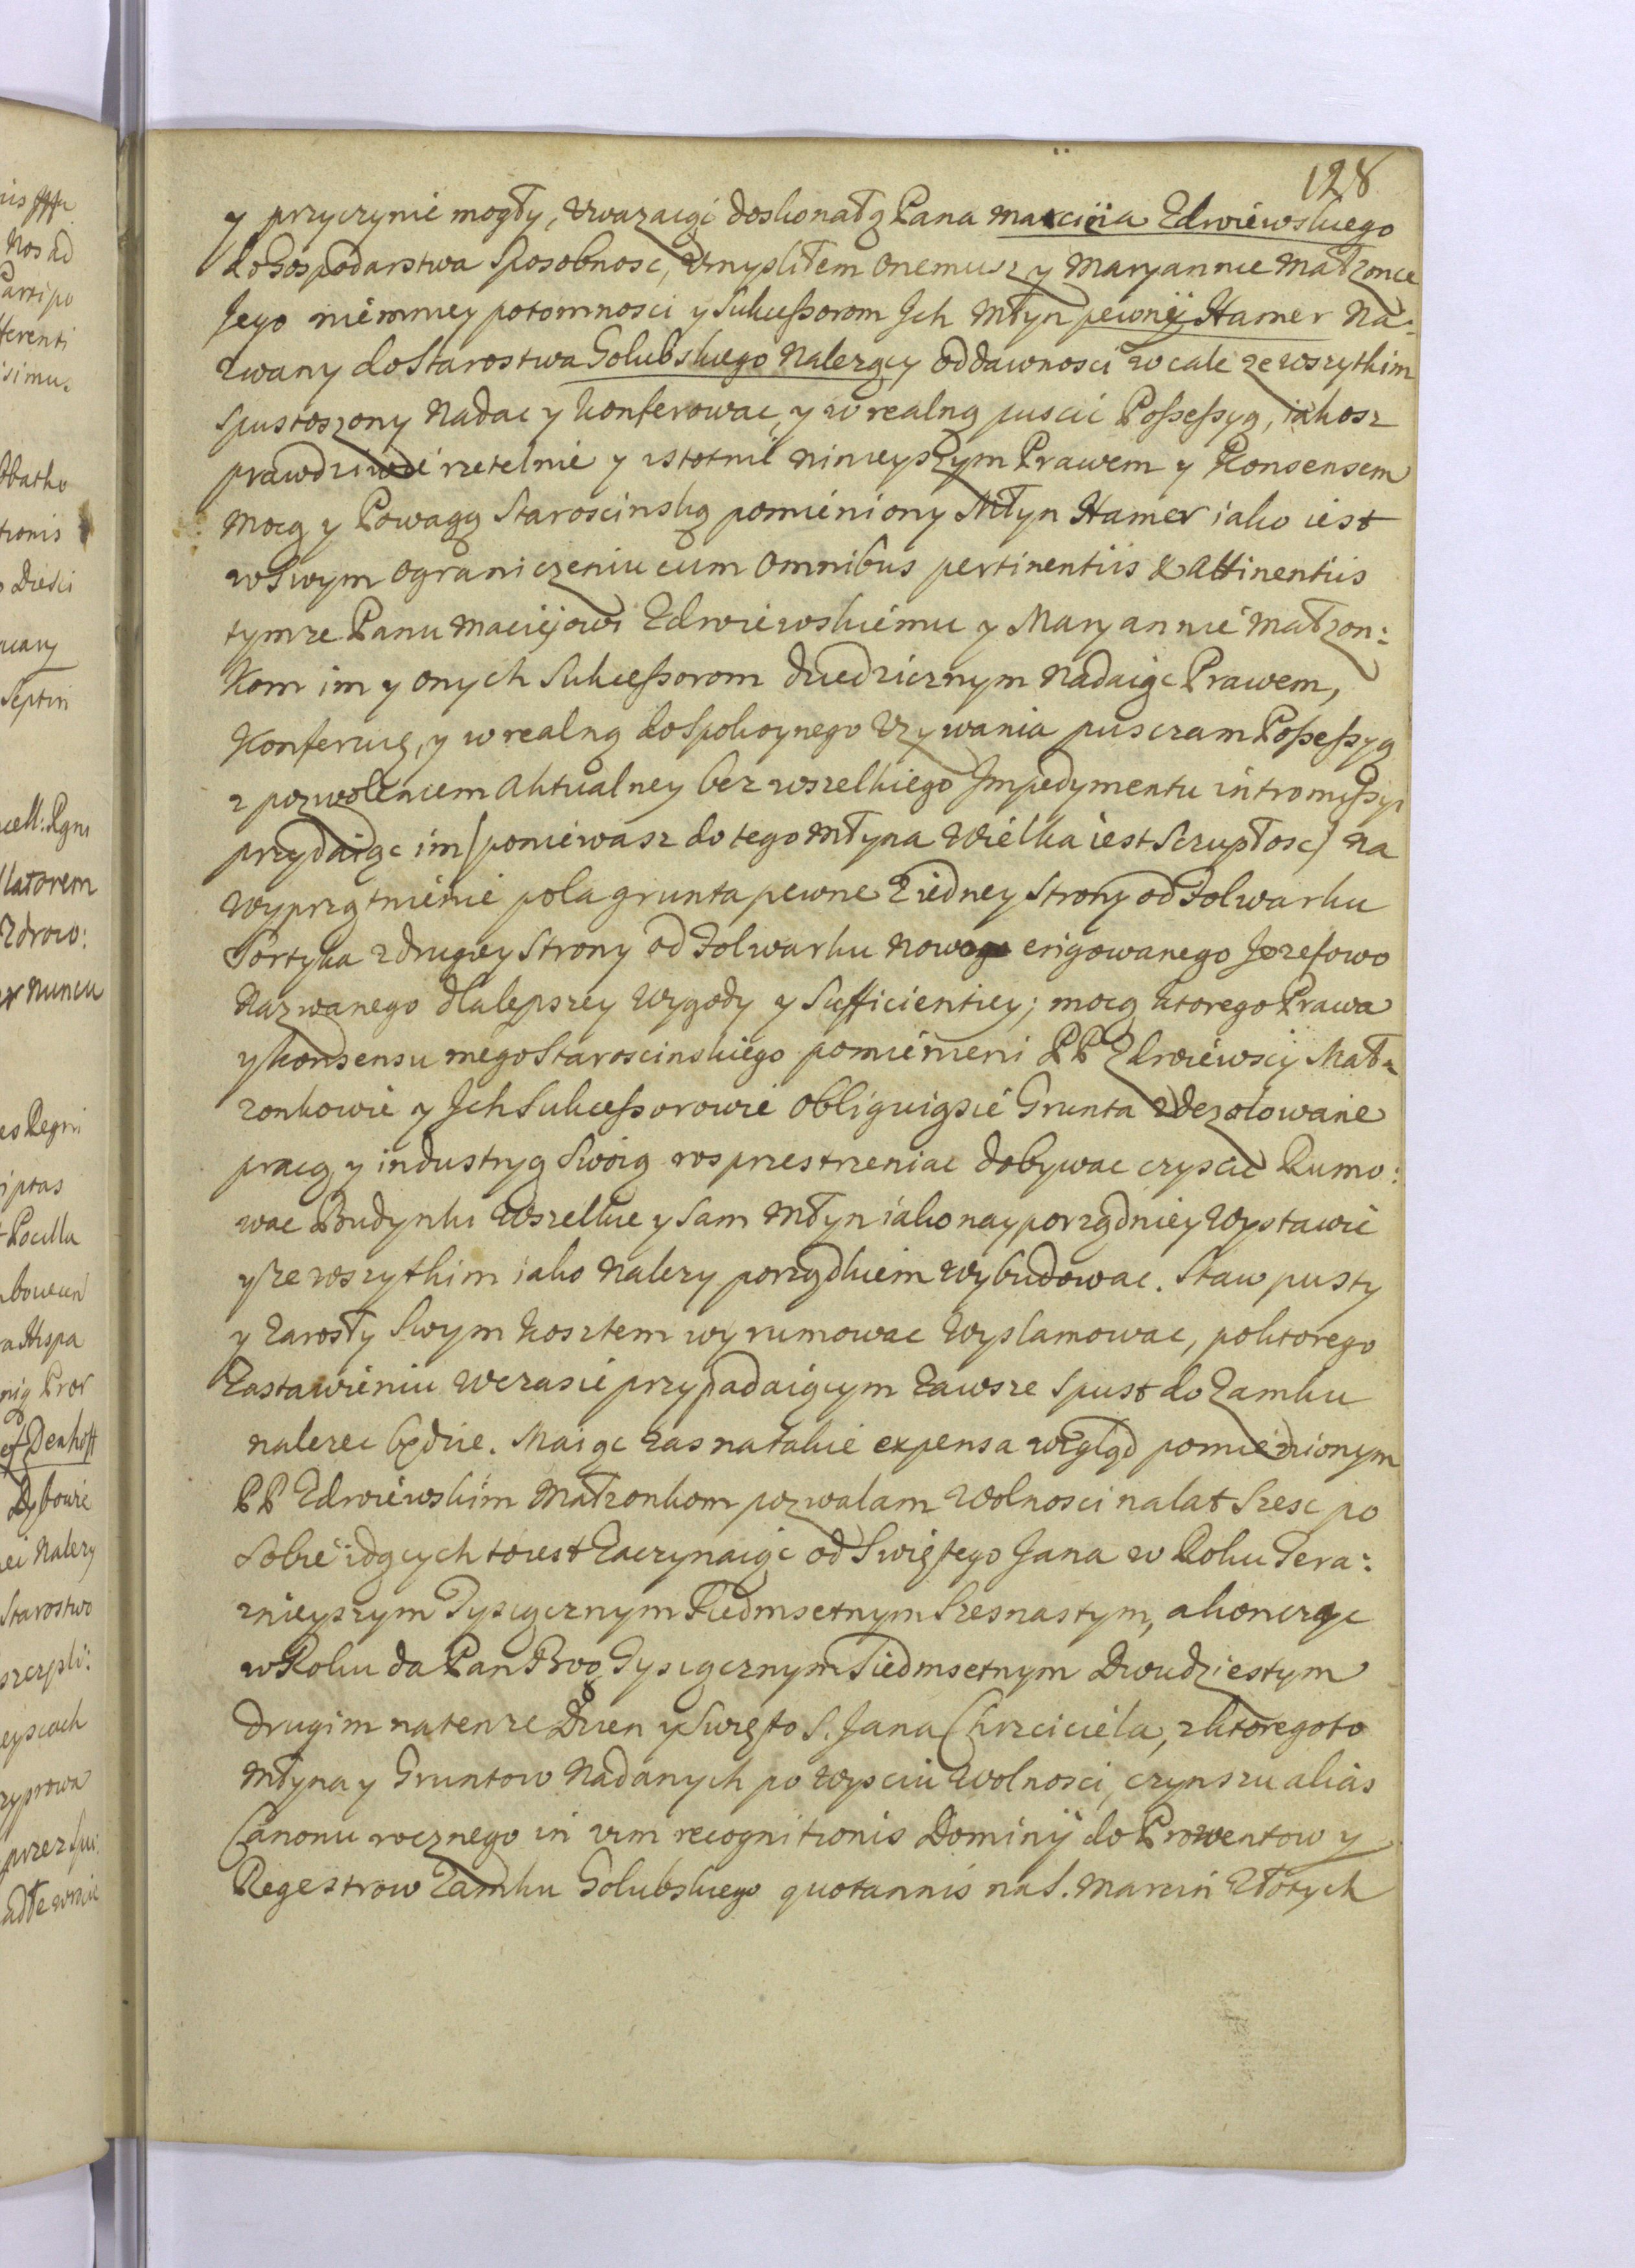 128
y przyczynić mogły, uwazaiąc doskonałą Pana Macieia Zdrwiewskiego
do Gospodarstwa Sposobnosc, umysliłem onemusz y Maryannie Małzonce
Jego niemniey potomnosci y Sukcessorom Jch Młyn pewny Hamer Na:
zwany do Starostwa Golubskiego Nalezący od dawnosci w cale ze wszytkim
Spustoszony Nadac y Konferowac, y w realną puscic Possessyą, iakosz
prawdziwie rzetelnie y istotnie ninieyszym Prawem y Konsensem
Mocą y Powagą Staroscinską pomieniony Młyn Hamer iako iest
w Swym ograniczeniu cum omnibus pertinentiis & attinentiis
tymze Panu Maciejowi Zdrwiewskiemu y Maryannie Małzon:
Kom im y onych Sukcessorom dziedzicznym Nadaiąc Prawem,
Konferuię, y w realną do Spokoynego Uzywania pusczam Possessyą
z pozwoleniem Aktualney bez wszelkiego Jmpedymentu intromissyi
przydaiąc im /poniewasz do tego Młyna Wielka iest Sczupłosc/ na
wyprzątnienie pola grunta pewne z iedney Strony od Folwarku
Sortyka z drugiey Strony od Folwarku Nowo erigowanego Jozefowo
Nazwanego dla lepszey Wygody y Sufficientiey; mocą ktorego Prawa
y Konsensu mego Staroscinskiego pomienieni PP Zdrwiewscy Mał:
zonkowie y Jch Sukcessorowie obliguiąsie Grunta zdezolowane
pracą y industryą Swoią rosprzestrzeniac dobywac czyscic Rumo:
wac Budynki Wszelkie y Sam Młyn iako nayporządniey Wystawic
y ze wszytkim iako Nalezy porządkiem Wybudowac. Staw pusty
y Zarosły Swym Kosztem wyrumowac Wyslamowac, po ktorego
Zastawieniu w czasie przypadaiącym Zawsze Spust do Zamku
nalezec będzie. Maiąc zas na takie expensa wzgląd pomienionym
PP Zdrwiewskim Małzonkom pozwalam Wolnosci na lat Szesc po
Sobie idących to iest Zaczynaiąc od Swiętego Jana w Roku Tera:
znieyszym Tysiącznym Siedmsetnym Szesnastym, a koncząc
w Roku da Pan Bog Tysiącznym Siedmsetnym Dwudziestym
drugim na tenze Dzien y Swięto S. Jana Chrzciciela, z ktorego to
Młyna y Gruntow Nadanych po Wysciu Wolnosci, czynszu alias
Canonu rocznego in vim recognitionis Dominij do Prowentow y
Regestrow Zamku Golubskiego quotannis na S. Marcin Złotych